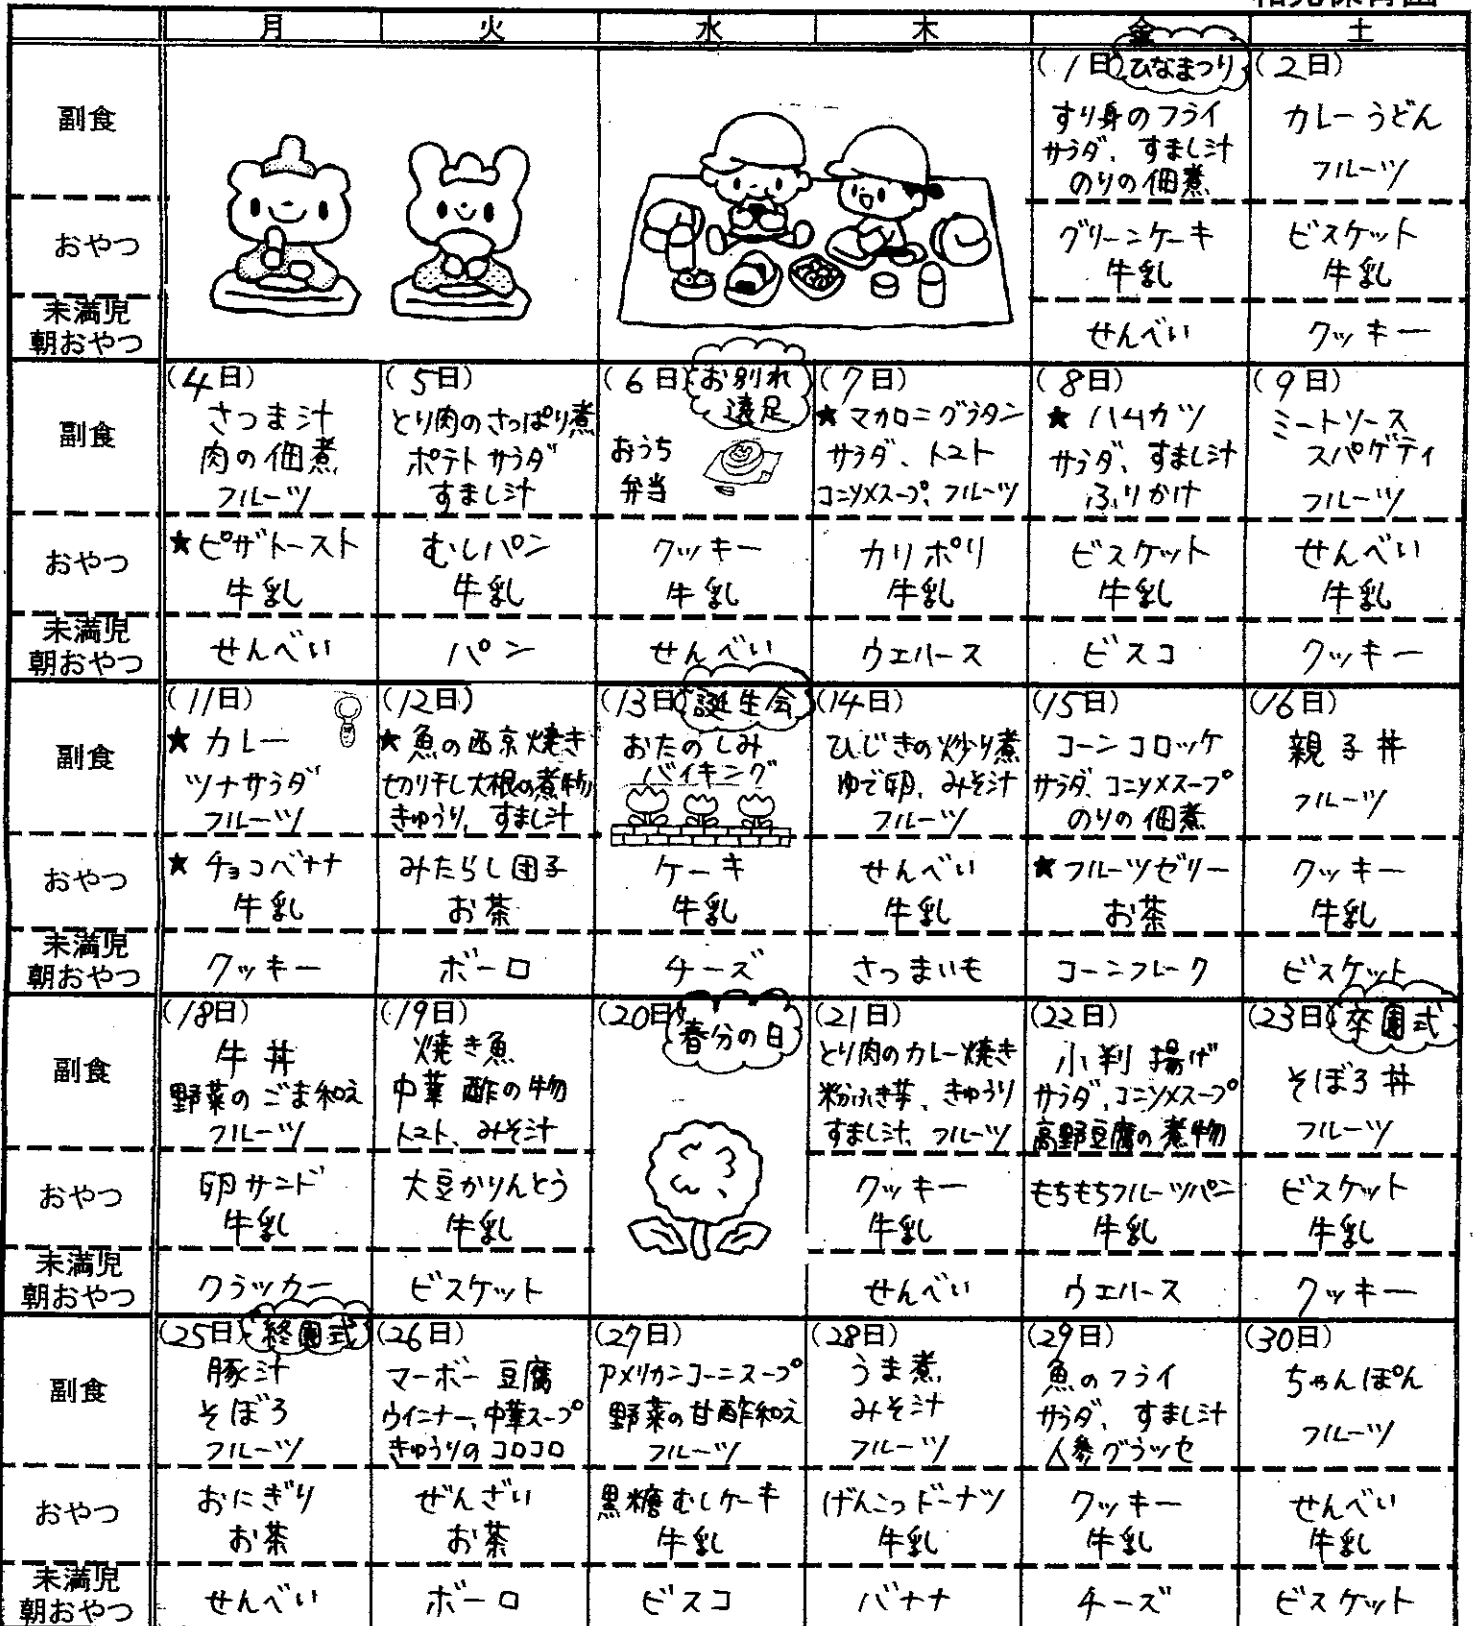 月 火 水 木 金 土
副食
(1日) ひなまつり
すり身のフライ
サラダ、すまし汁
のりの佃煮
(2日)
カレーうどん
フルーツ
おやつ
グリーンケーキ
牛乳
ビスケット
牛乳
未満児
朝おやつ
せんべい
クッキー
副食
(4日)
さつま汁
肉の佃煮
フルーツ
(5日)
とり肉のさっぱり煮
ポテトサラダ
すまし汁
(6日) お別れ
遠足
おうち
弁当
(7日)
★マカロニグラタン
サラダ、トマト
コンソメスープ、フルーツ
(8日)
★ハムカツ
サラダ、すまし汁
ふりかけ
(9日)
ミートソース
スパゲティ
フルーツ
おやつ
★ピザトースト
牛乳
むしパン
牛乳
クッキー
牛乳
カリポリ
牛乳
ビスケット
牛乳
せんべい
牛乳
未満児
朝おやつ
せんべい
パン
せんべい
ウエハース
ビスコ
クッキー
副食
(11日)
★カレー
ツナサラダ
フルーツ
(12日)
★魚の西京焼き
切り干し大根の煮物
きゅうり、すまし汁
(13日) 誕生会
おたのしみ
バイキング
(14日)
ひじきの炒り煮
ゆで卵、みそ汁
フルーツ
(15日)
コーンコロッケ
サラダ、コンソメスープ
のりの佃煮
(16日)
親子丼
フルーツ
おやつ
★チョコバナナ
牛乳
みたらし団子
お茶
ケーキ
牛乳
せんべい
牛乳
★フルーツゼリー
お茶
クッキー
牛乳
未満児
朝おやつ
クッキー
ボーロ
チーズ
さつまいも
コーンフレーク
ビスケット
副食
(18日)
牛丼
野菜のごま和え
フルーツ
(19日)
焼き魚
中華酢の物
トマト、みそ汁
(20日) 春分の日
(21日)
とり肉のカレー焼き
粉ふき芋、きゅうり
すまし汁、フルーツ
(22日)
小判揚げ
サラダ、コンソメスープ
高野豆腐の煮物
(23日) 卒園式
そぼろ丼
フルーツ
おやつ
卵サンド
牛乳
大豆かりんとう
牛乳
クッキー
牛乳
もちもちフルーツパン
牛乳
ビスケット
牛乳
未満児
朝おやつ
クラッカー
ビスケット
せんべい
ウエハース
クッキー
副食
(25日) 終園式
豚汁
そぼろ
フルーツ
(26日)
マーボー豆腐
ウインナー、中華スープ
きゅうりのコロコロ
(27日)
アメリカンコーンスープ
野菜の甘酢和え
フルーツ
(28日)
うま煮
みそ汁
フルーツ
(29日)
魚のフライ
サラダ、すまし汁
人参グラッセ
(30日)
ちゃんぽん
フルーツ
おやつ
おにぎり
お茶
ぜんざい
お茶
黒糖むしケーキ
牛乳
げんこつドーナツ
牛乳
クッキー
牛乳
せんべい
牛乳
未満児
朝おやつ
せんべい
ボーロ
ビスコ
バナナ
チーズ
ビスケット